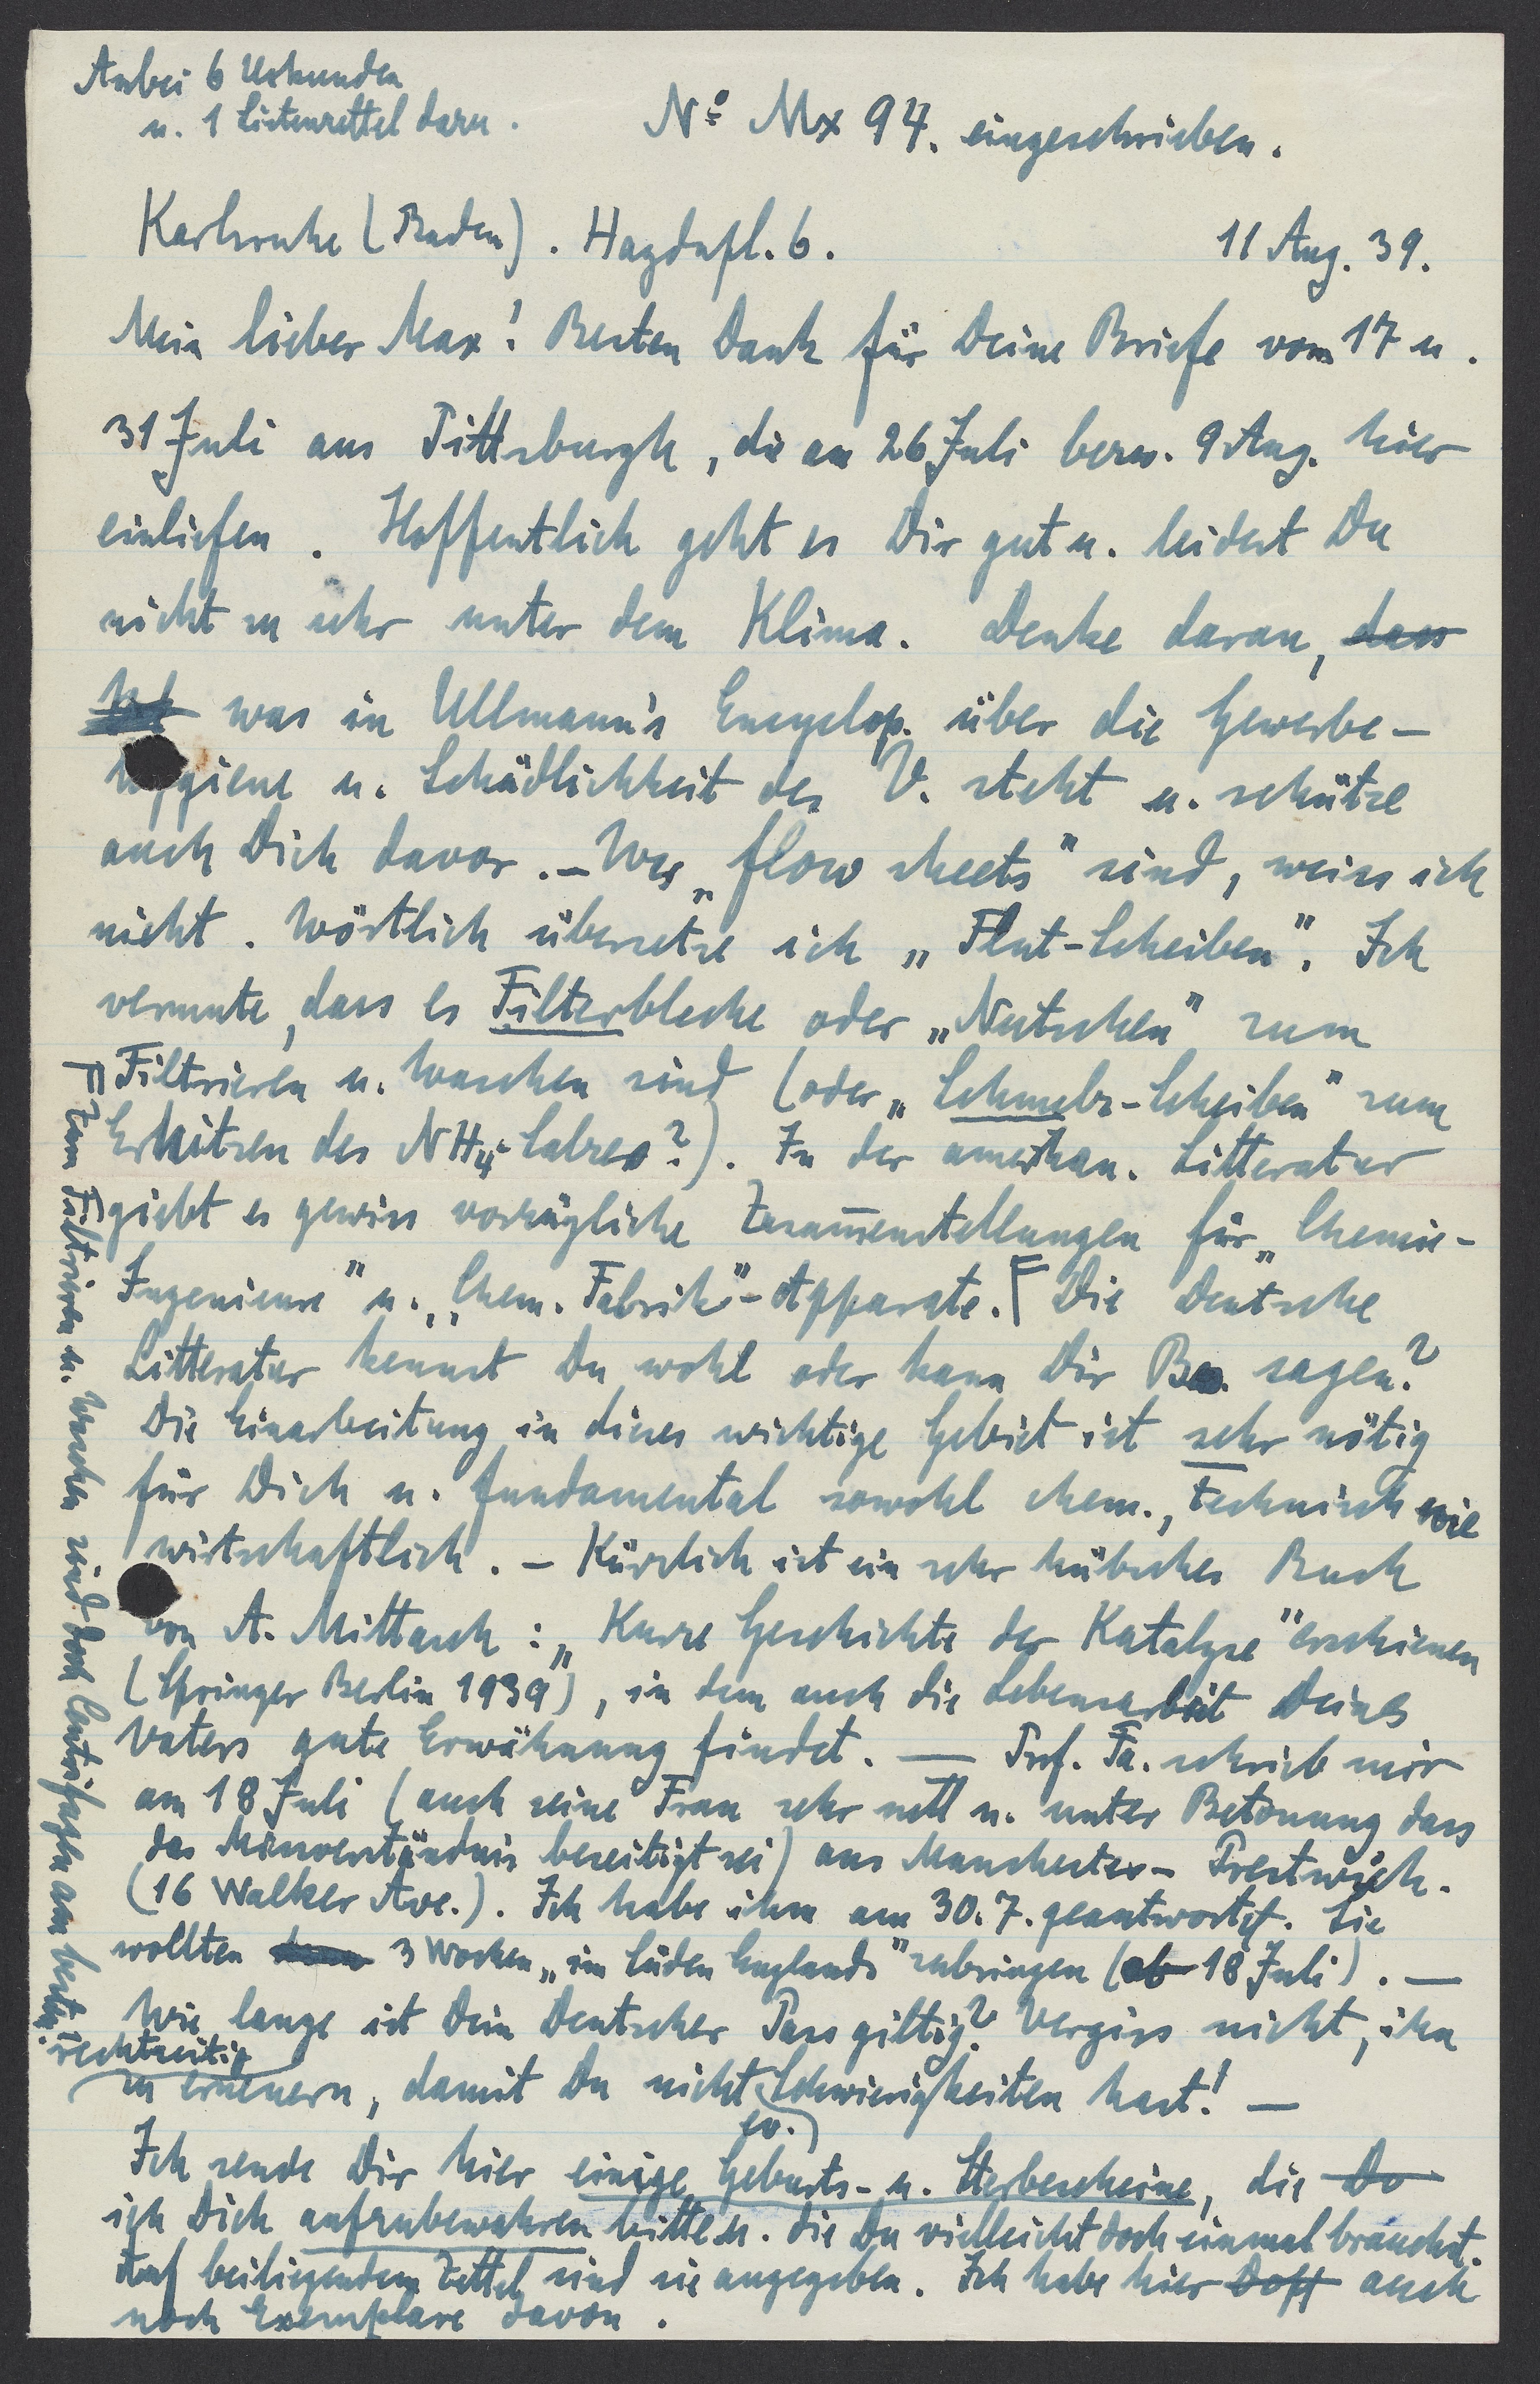 Anbei 6 Urkunden
u. 1 Listenzettel dazu.
No Mx 94. eingeschrieben.
Karlsruhe (Baden). Haydnpl. 6.
11 Aug. 39.
Mein lieber Max! Besten Dank für Deine Briefe vom 17 u.
31 Juli aus Pittsburgh, die am 26 Juli bezw. 9 Aug. hier
einliefen. Hoffentlich geht es Dir gut u. leidest Du
nicht zu sehr unter dem Klima. Denke daran, dass
was in Ullmann's Encyclop. über die Gewerbe-
hygiene u. Schädlichkeit des V. steht u. schütze
auch Dich davor. - Was "flow sheets" sind, weiss ich
nicht. Wörtlich übersetze ich "Flut-Scheiben". Ich
vermute, dass es Filterbleche oder "Nutschen" zum
Filtrieren u. Waschen sind (oder "Schmelz-Scheiben" zum
Erhitzen des NH4-Salzes?). In der amerikan. Litteratur
giebt es gewiss vorzügliche Zusam̅enstellungen für "Chemie-
Ingenieure" u. "Chem. Fabrik"-Apparate. Die Deutsche
Litteratur kennst Du wohl oder kann Dir sagen?
Die Einarbeitung in dieses wichtige Gebiet ist sehr nötig
für Dich u. fundamental sowohl chem., technisch wie
wirtschaftlich. - Kürzlich ist ein sehr hübsches Buch
von A. Mittasch: "Kurze Geschichte der Katalyse" erschienen
(Springer Berlin 1939), in dem auch die Lebensarbeit Deines
Vaters gute Erwähnung findet. — Prof. Fa. schrieb mir
am 18 Juli (auch seine Frau sehr nett u. unter Betonung dass
das Missverständnis beseitigt sei) aus Manchester-Prestwich.
(16 Walker Ave.). Ich habe ihm am 30.7. geantwortet. Sie
wollten 3 Wochen "im Süden Englands" zubringen (ab 18 Juli). —
Wie lange ist Dein Deutscher Pass giltig? Vergiss nicht, ihn
rechtzeitig
zu erneuern, damit Du nicht Schwierigkeiten hast! —
ev.
Ich sende Dir hier einige Geburts- u. Sterbescheine, die Do
ich Dich aufzubewahren bitte u. die Du vielleicht doch einmal brauchst.
Auf beiliegendem Zettel sind sie angegeben. Ich habe hier Dopp auch
noch Exemplare davon.
Zum Filtrieren u. Waschen sind doch Centrifugen am besten.